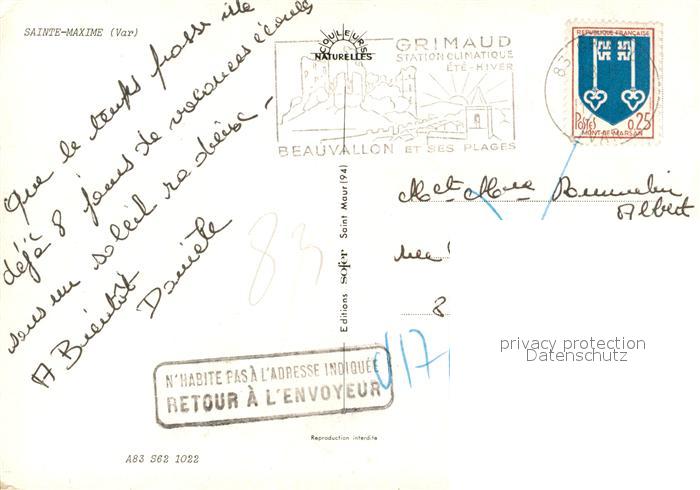 SAINTE-MAXIME (Var)
Que le temps passe vite
déjà 8 jours de vacances écoulés
sous un soleil radieux -
A Bientôt
Danièle
83
COULEURS
NATURELLES
GRIMAUD
STATION CLIMATIQUE
ÉTÉ-HIVER
BEAUVALLON ET SES PLAGES
83
REPUBLIQUE FRANÇAISE
POSTES 0,25
MONT-DE-MARSAN
Editions Sofer Saint Maur (94)
Albert
8
V17
privacy protection
Datenschutz
N'HABITE PAS À L'ADRESSE INDIQUÉE
RETOUR À L'ENVOYEUR
Reproduction interdite
A83 S62 1022